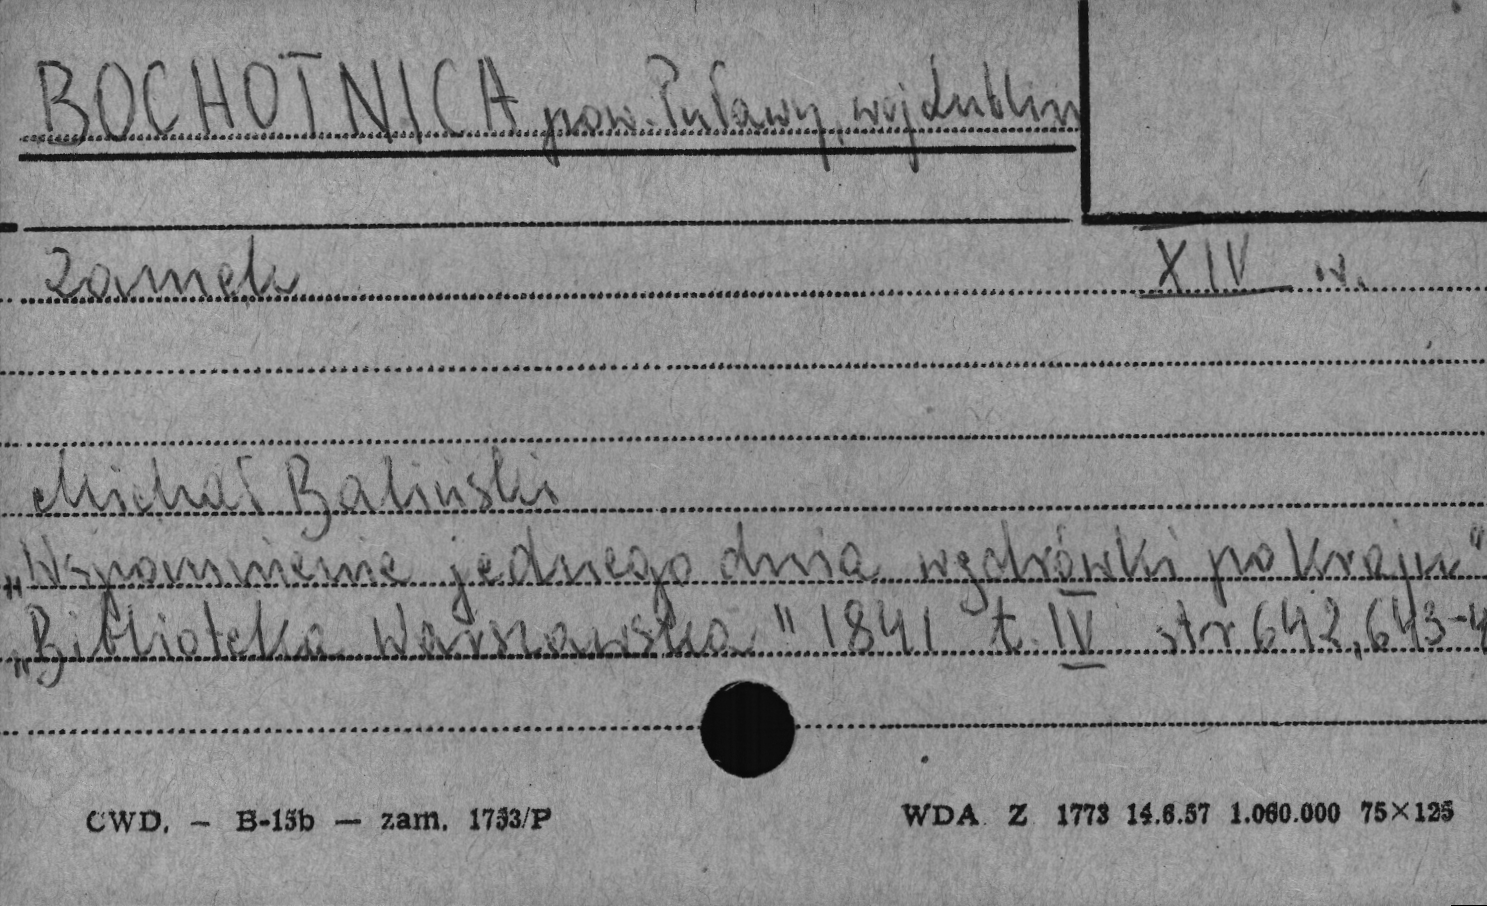 BOCHOTNICA pow. Puławy, woj Lublin
Zamek XIV w.
Michał Baliński
„Wspomnienie jednego dnia wędrówki po kraju"
„Biblioteka Warszawska" 1841 t. IV str 642, 643-4
CWD. — B-15b — zam. 1753/P
WDA Z 1773 14.6.57 1.060.000 75×125